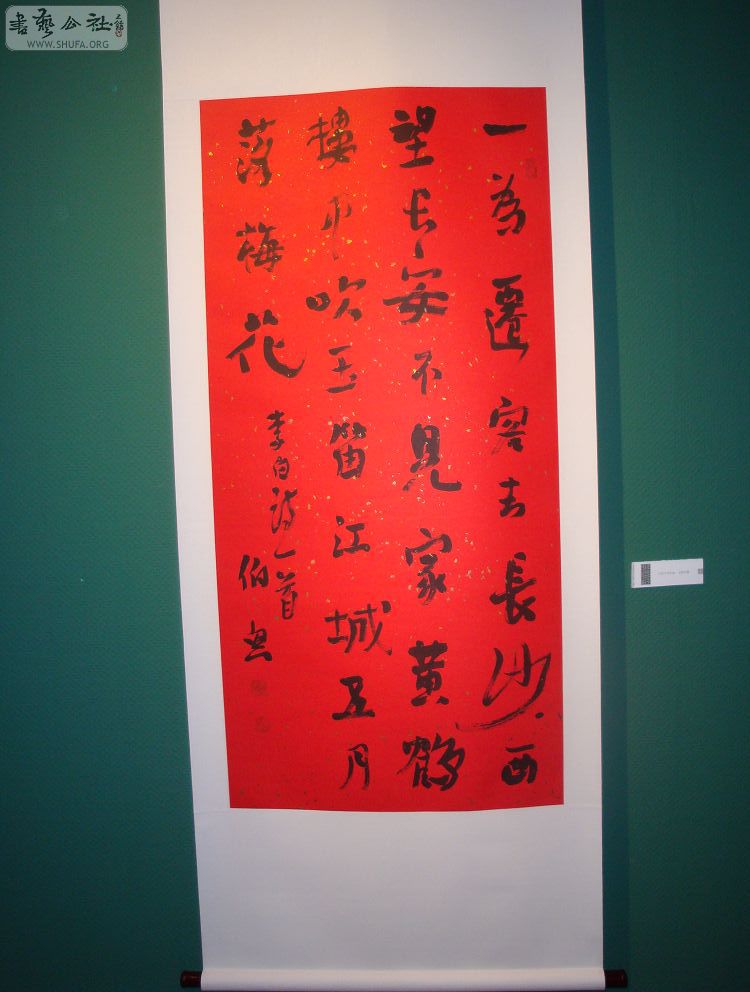 一为遷客去長沙西
望长安不見家黄鹤
樓中吹玉笛江城五月
落梅花
李白诗一首
伯
書藝公社
WWW.SHUFA.ORG